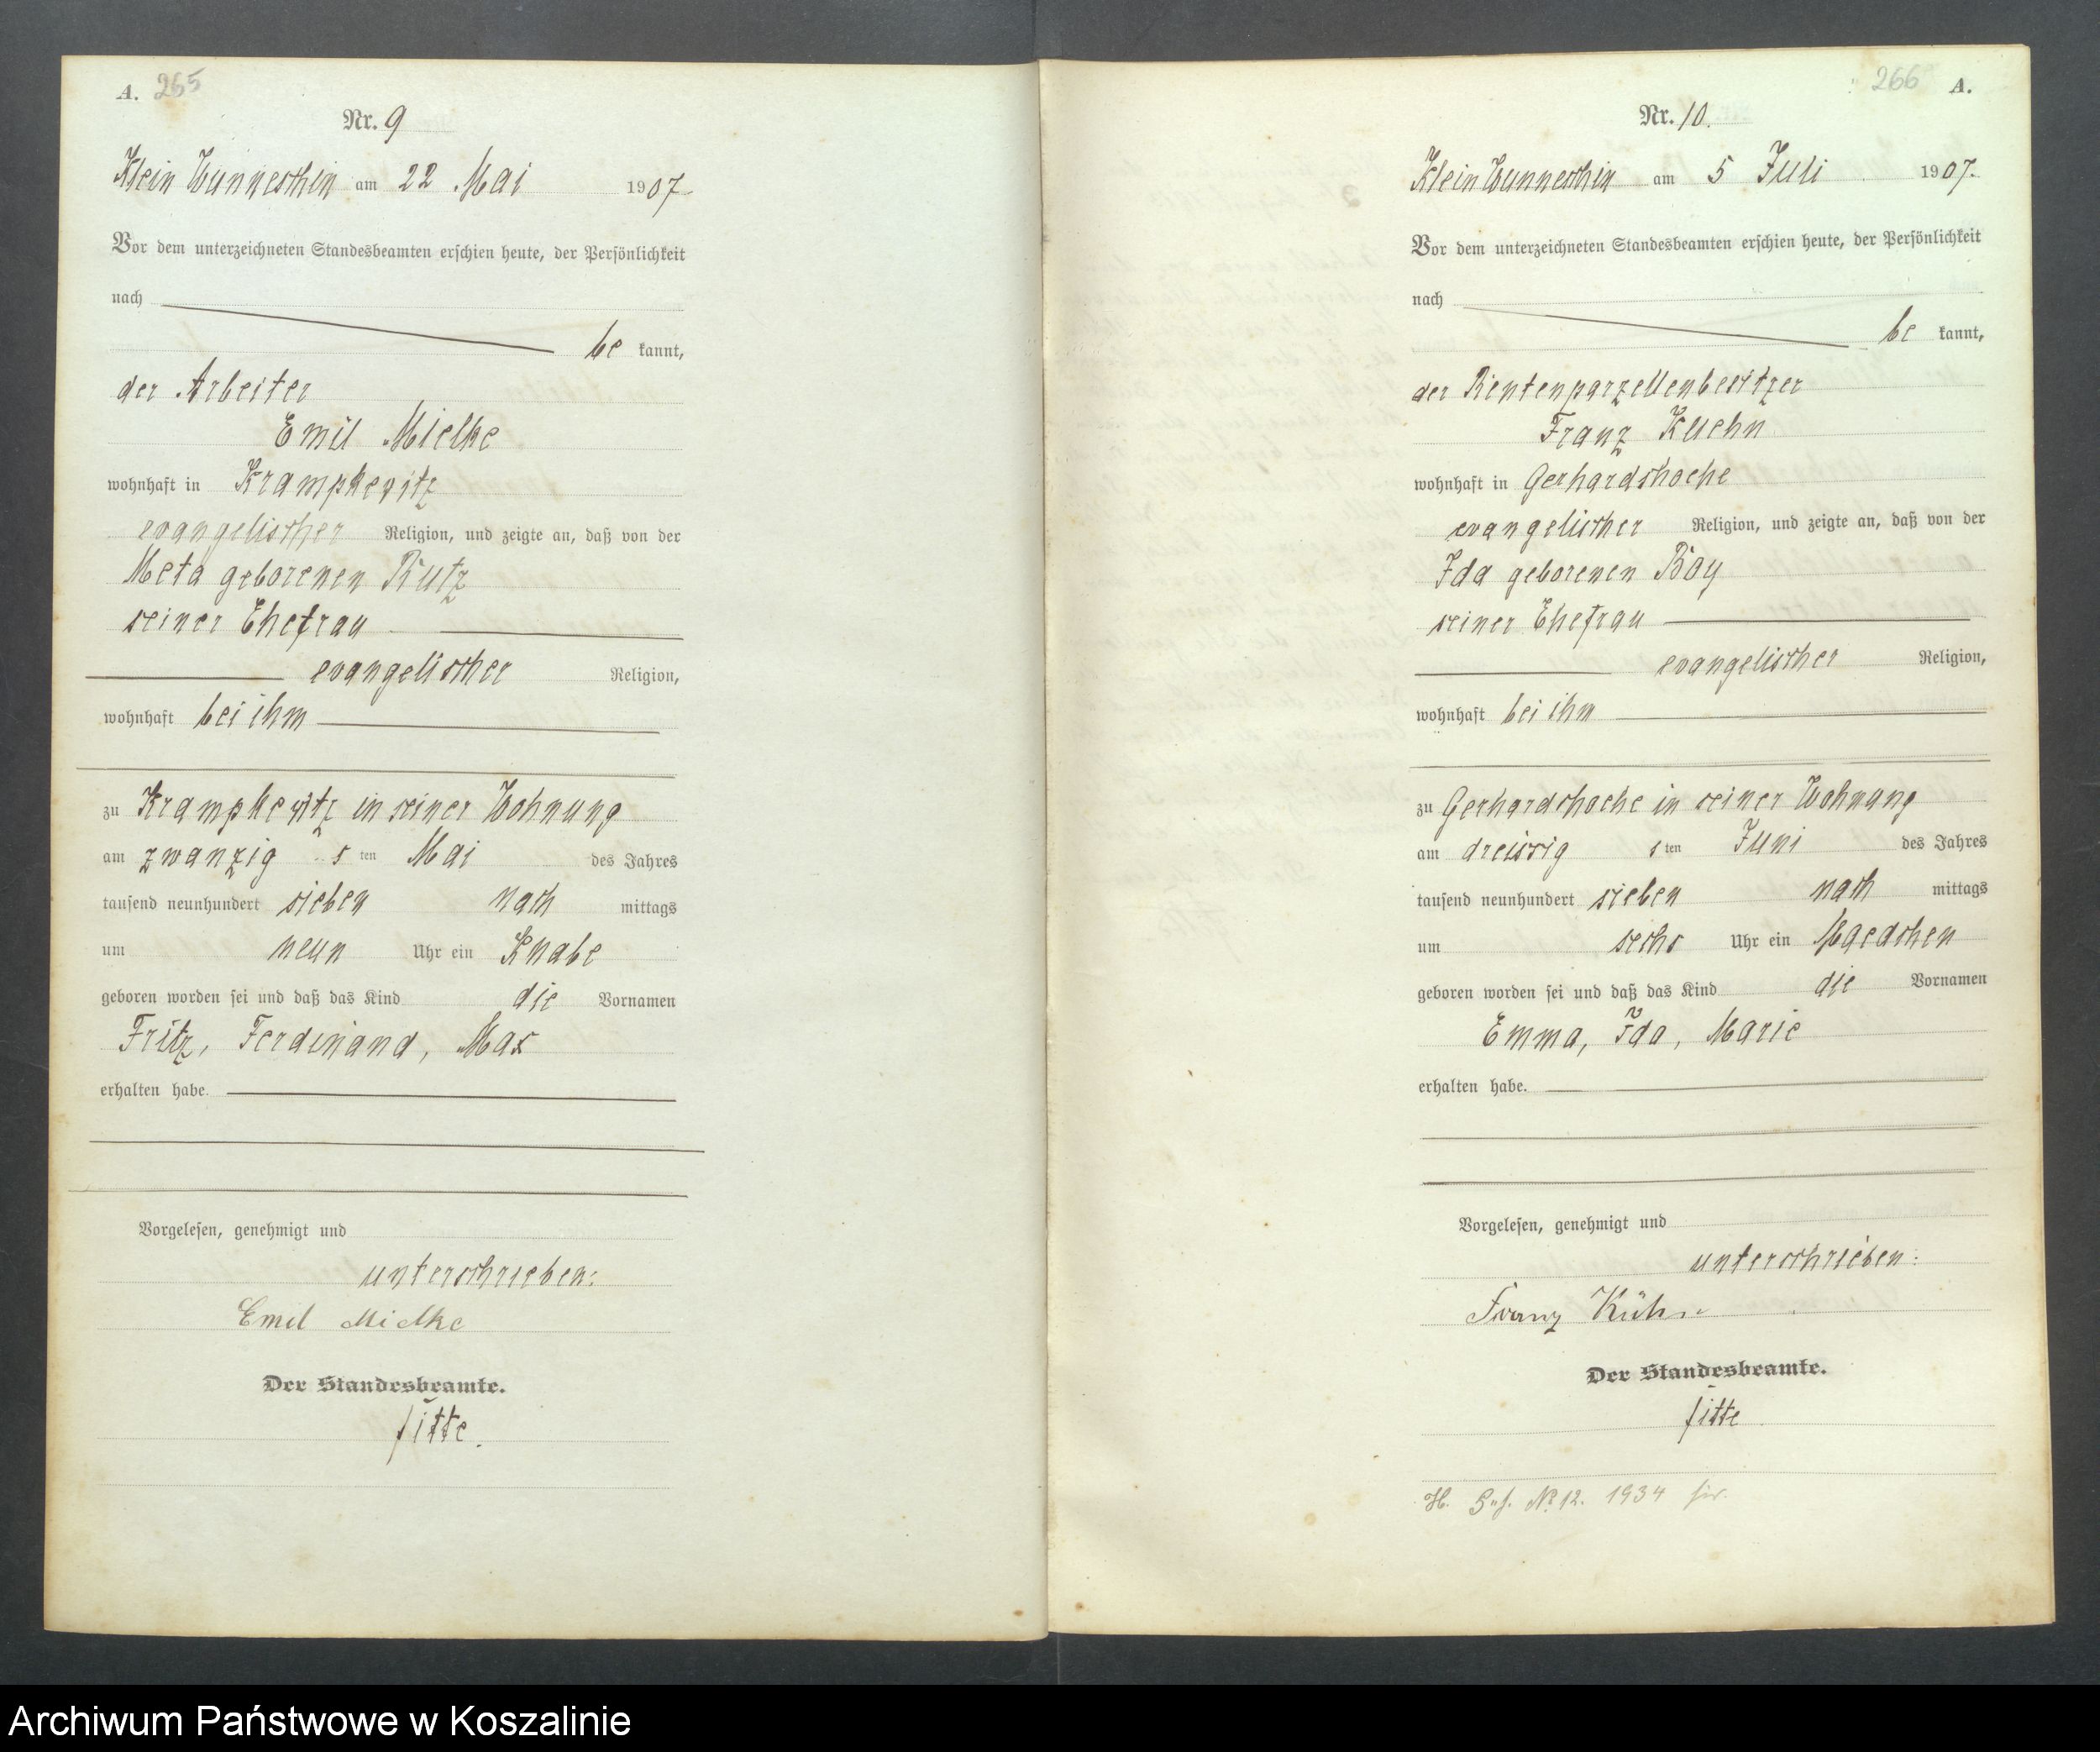 A. 265
Nr. 9
Klein Wunneschin am 22 Mai 1907
Vor dem unterzeichneten Standesbeamten erschien heute, der Persönlichkeit
nach
be kannt,
der Arbeiter
Emil Mielke
wohnhaft in Krampkewitz
evangelischer Religion, und zeigte an, daß von der
Meta geborenen Rutz
seiner Ehefrau
evangelischer Religion,
wohnhaft bei ihm
zu Krampkewitz in seiner Wohnung
am zwanzig sten Mai des Jahres
tausend neunhundert sieben nach mittags
um neun Uhr ein Knabe
geboren worden sei und daß das Kind die Vornamen
Fritz, Ferdinand, Max
erhalten habe.
Vorgelesen, genehmigt und
unterschrieben:
Emil Mielke
Der Standesbeamte.
266 A.
Nr. 10.
Klein Wunneschin am 5 Juli 1907.
Vor dem unterzeichneten Standesbeamten erschien heute, der Persönlichkeit
nach
be kannt,
der Rentenparzellenbesitzer
Franz Kuehn
wohnhaft in Gerhardshoehe
evangelischer Religion, und zeigte an, daß von der
Ida geborenen Boy
seiner Ehefrau
evangelischer Religion,
wohnhaft bei ihm
zu Gerhardshoehe in seiner Wohnung
am dreissig sten Juni des Jahres
tausend neunhundert sieben nach mittags
um sechs Uhr ein Maedchen
geboren worden sei und daß das Kind die Vornamen
Emma, Ida, Marie
erhalten habe.
Vorgelesen, genehmigt und
unterschrieben:
Franz Kühn
Der Standesbeamte.
H. No 12. 1934
Archiwum Państwowe w Koszalinie